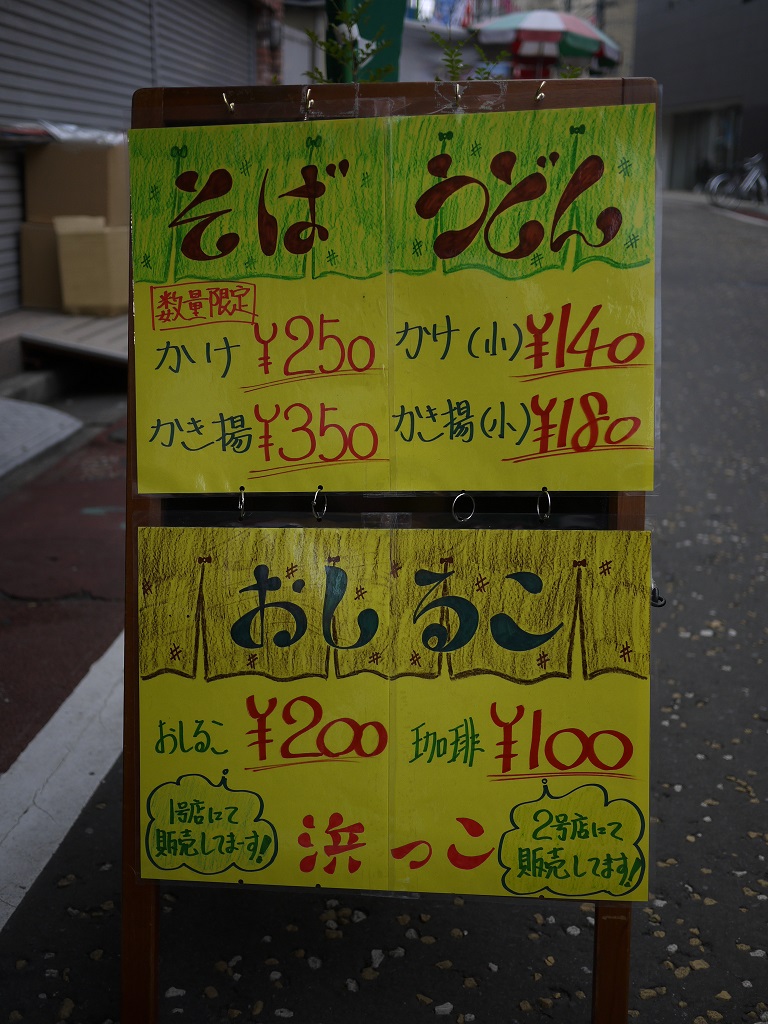 そば
うどん
数量限定
かけ ¥250
かき揚 ¥350
かけ(小) ¥140
かき揚(小) ¥180
おしるこ
おしるこ ¥200
珈琲 ¥100
1号店にて
販売してまーす!
浜っこ
2号店にて
販売してます!